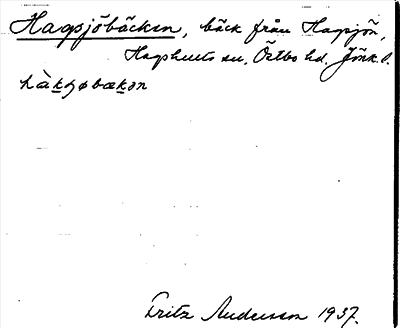 Hagsjöbäcken, bäck från Hagsjön,
Hagshults sn. Östbo hd. Jönk. l.
Fritz Andersson 1937.